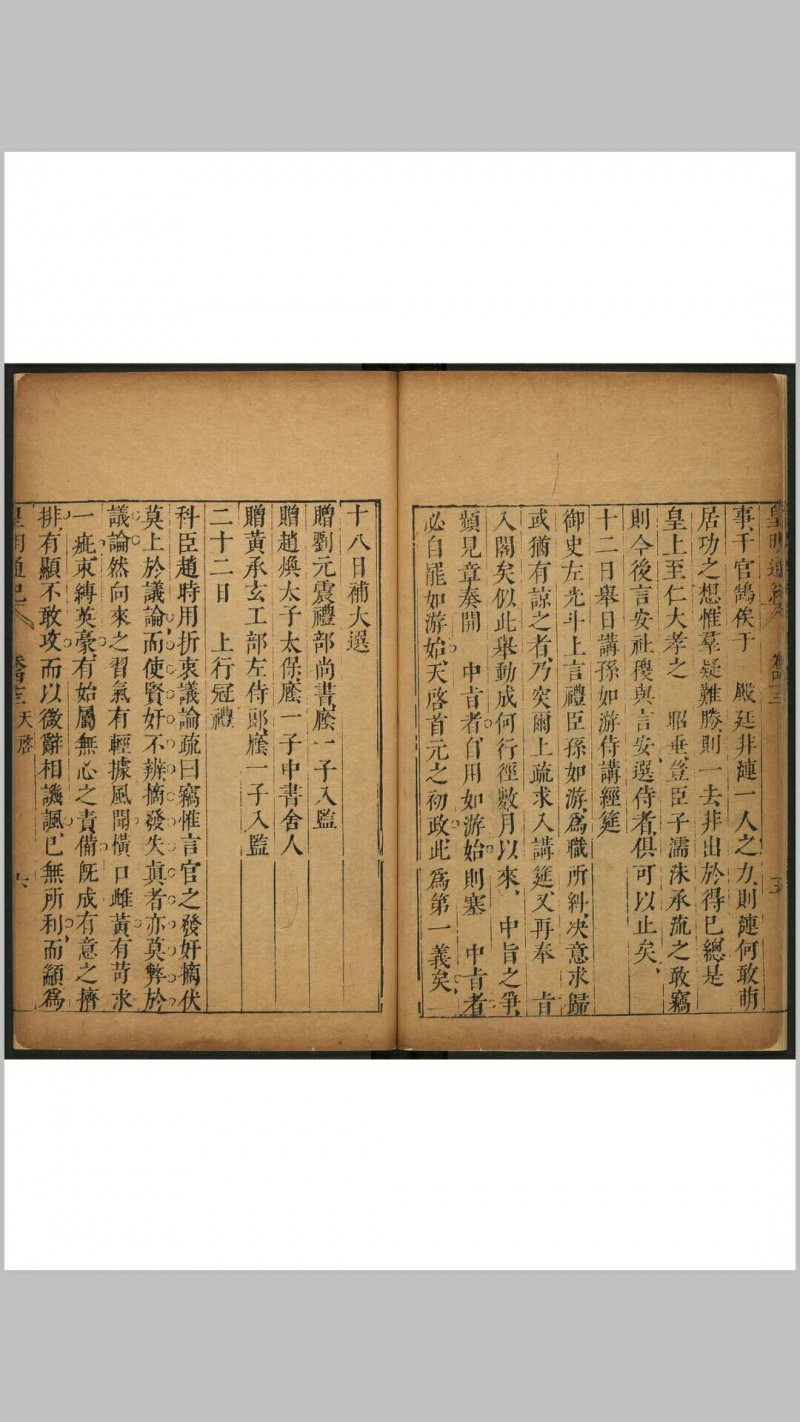 事千官鵠俟于　嚴廷非漣一人之力則漣何敢萌
居功之想惟羣疑難勝則一去非出於得已總是
皇上至仁大孝之　昭垂豈臣子濡沫承流之敢竊
則今後言安社稷與言安選侍者俱可以止矣
十二日舉日講孫如游侍講經筵
御史左光斗上言禮臣孫如游為職所糾决意求歸
或猶有諒之者乃突爾上疏求入講筵又再奉　旨
入閣矣似此舉動成何行徑數月以來　中旨之爭
頻見章奏開　中旨者自用如游始則塞　中旨者
必自罷如游始天啓首元之初政此為第一義矣
十八日補大選
贈劉元震禮部尚書廕一子入監
贈趙煥太子太保廕一子中書舍人
贈黃承玄工部左侍郎廕一子入監
二十二日　上行冠禮
科臣趙時用折衷議論疏曰竊惟言官之發奸摘伏
莫上於議論而使賢奸不辨摘發失真者亦莫弊於
議論然向來之習氣有輕據風聞橫口雌黃有苛求
一疵束縛英豪有始屬無心之責備旣成有意之擠
排有顯不敢攻而以微辭相譏諷已無所利而顓為
皇明通紀　天啓　六